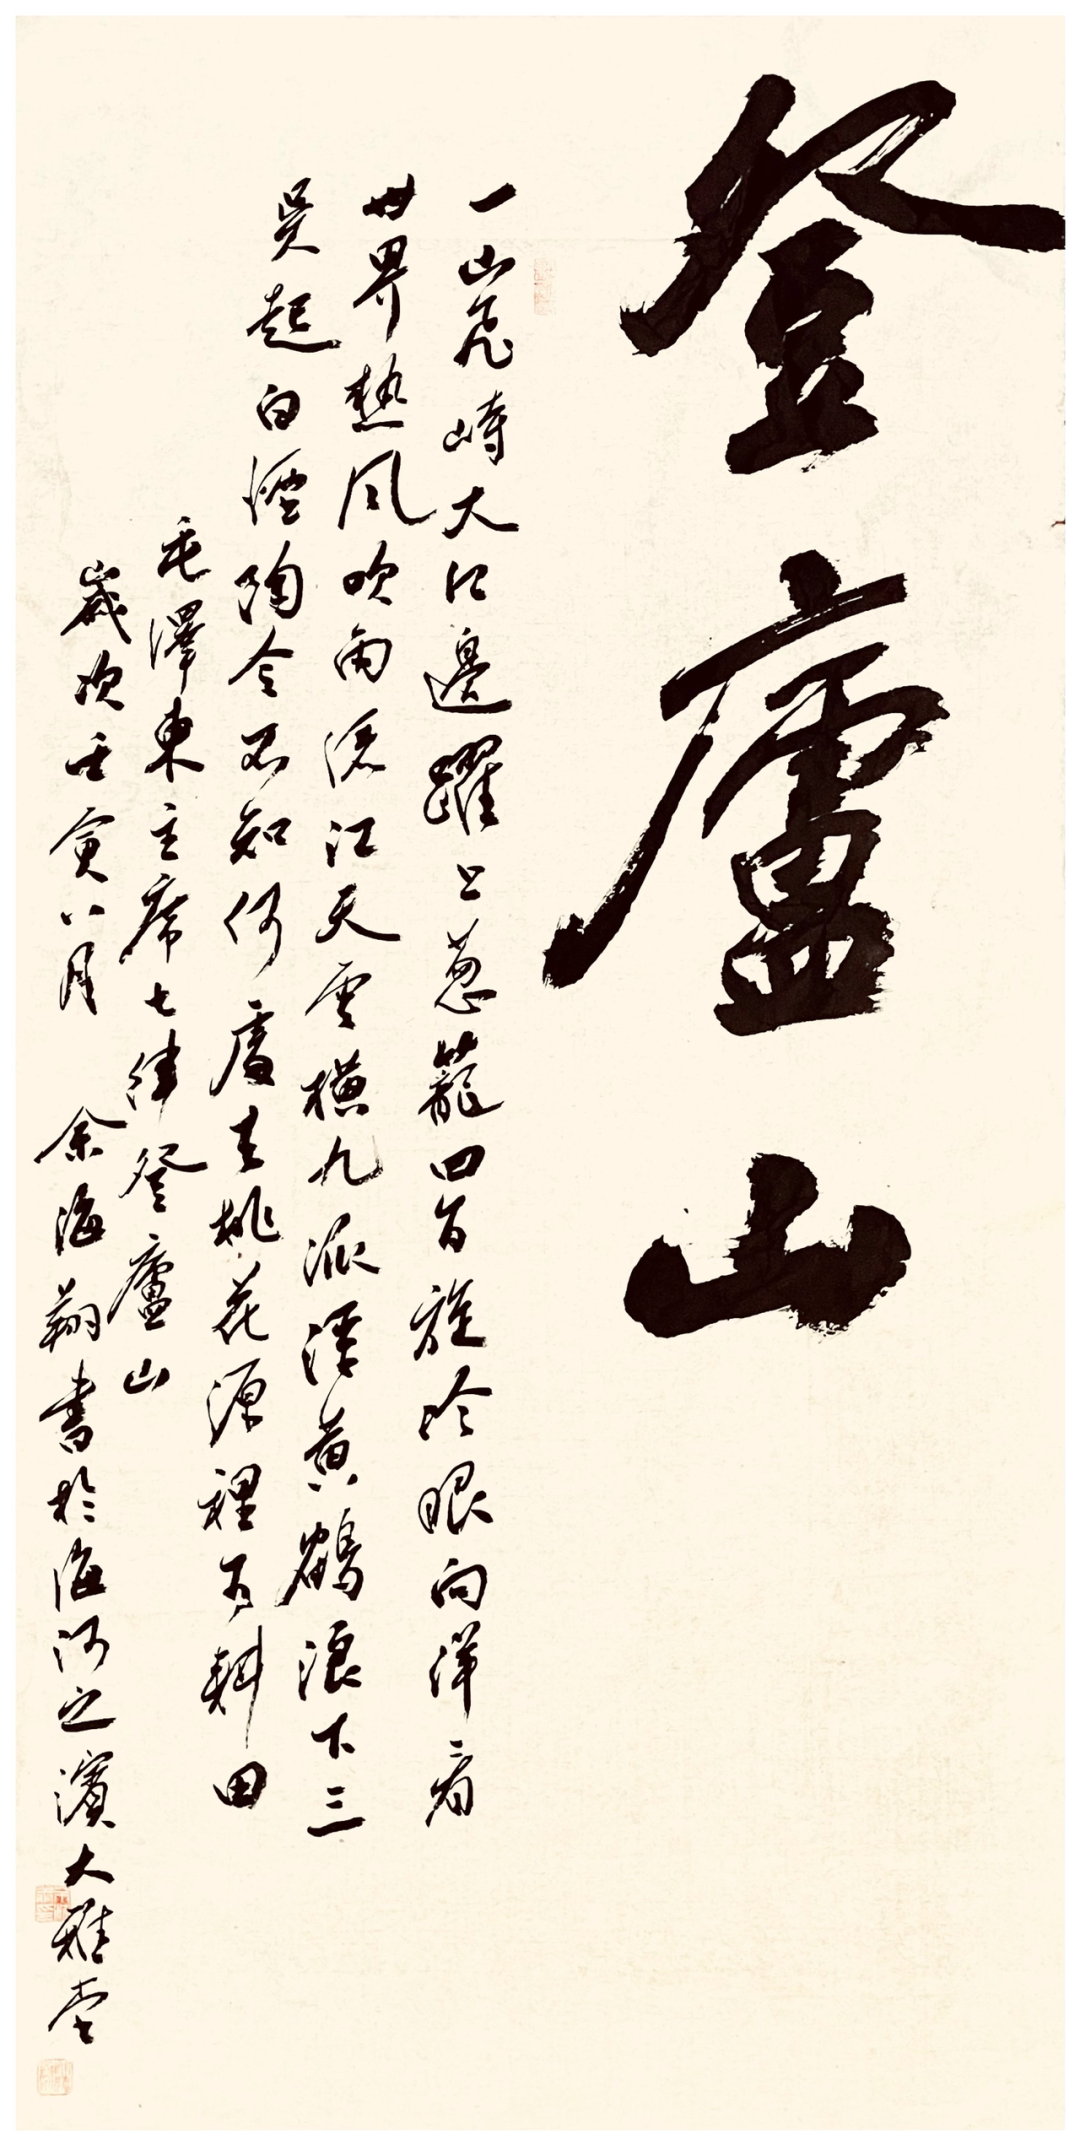 登廬山
一山飛峙大江邊躍上葱籠四百旋冷眼向洋看
世界熱風吹雨洒江天雲橫九派浮黄鶴浪下三
吳起白煙陶令不知何處去桃花源裡可耕田
毛澤東主席七律登廬山
歲次壬寅八月 余海翔書於海河之濱大雅堂